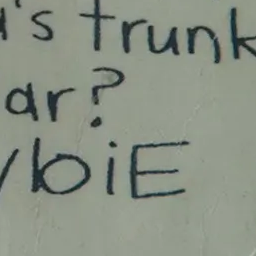 's trunk
ar?
biE